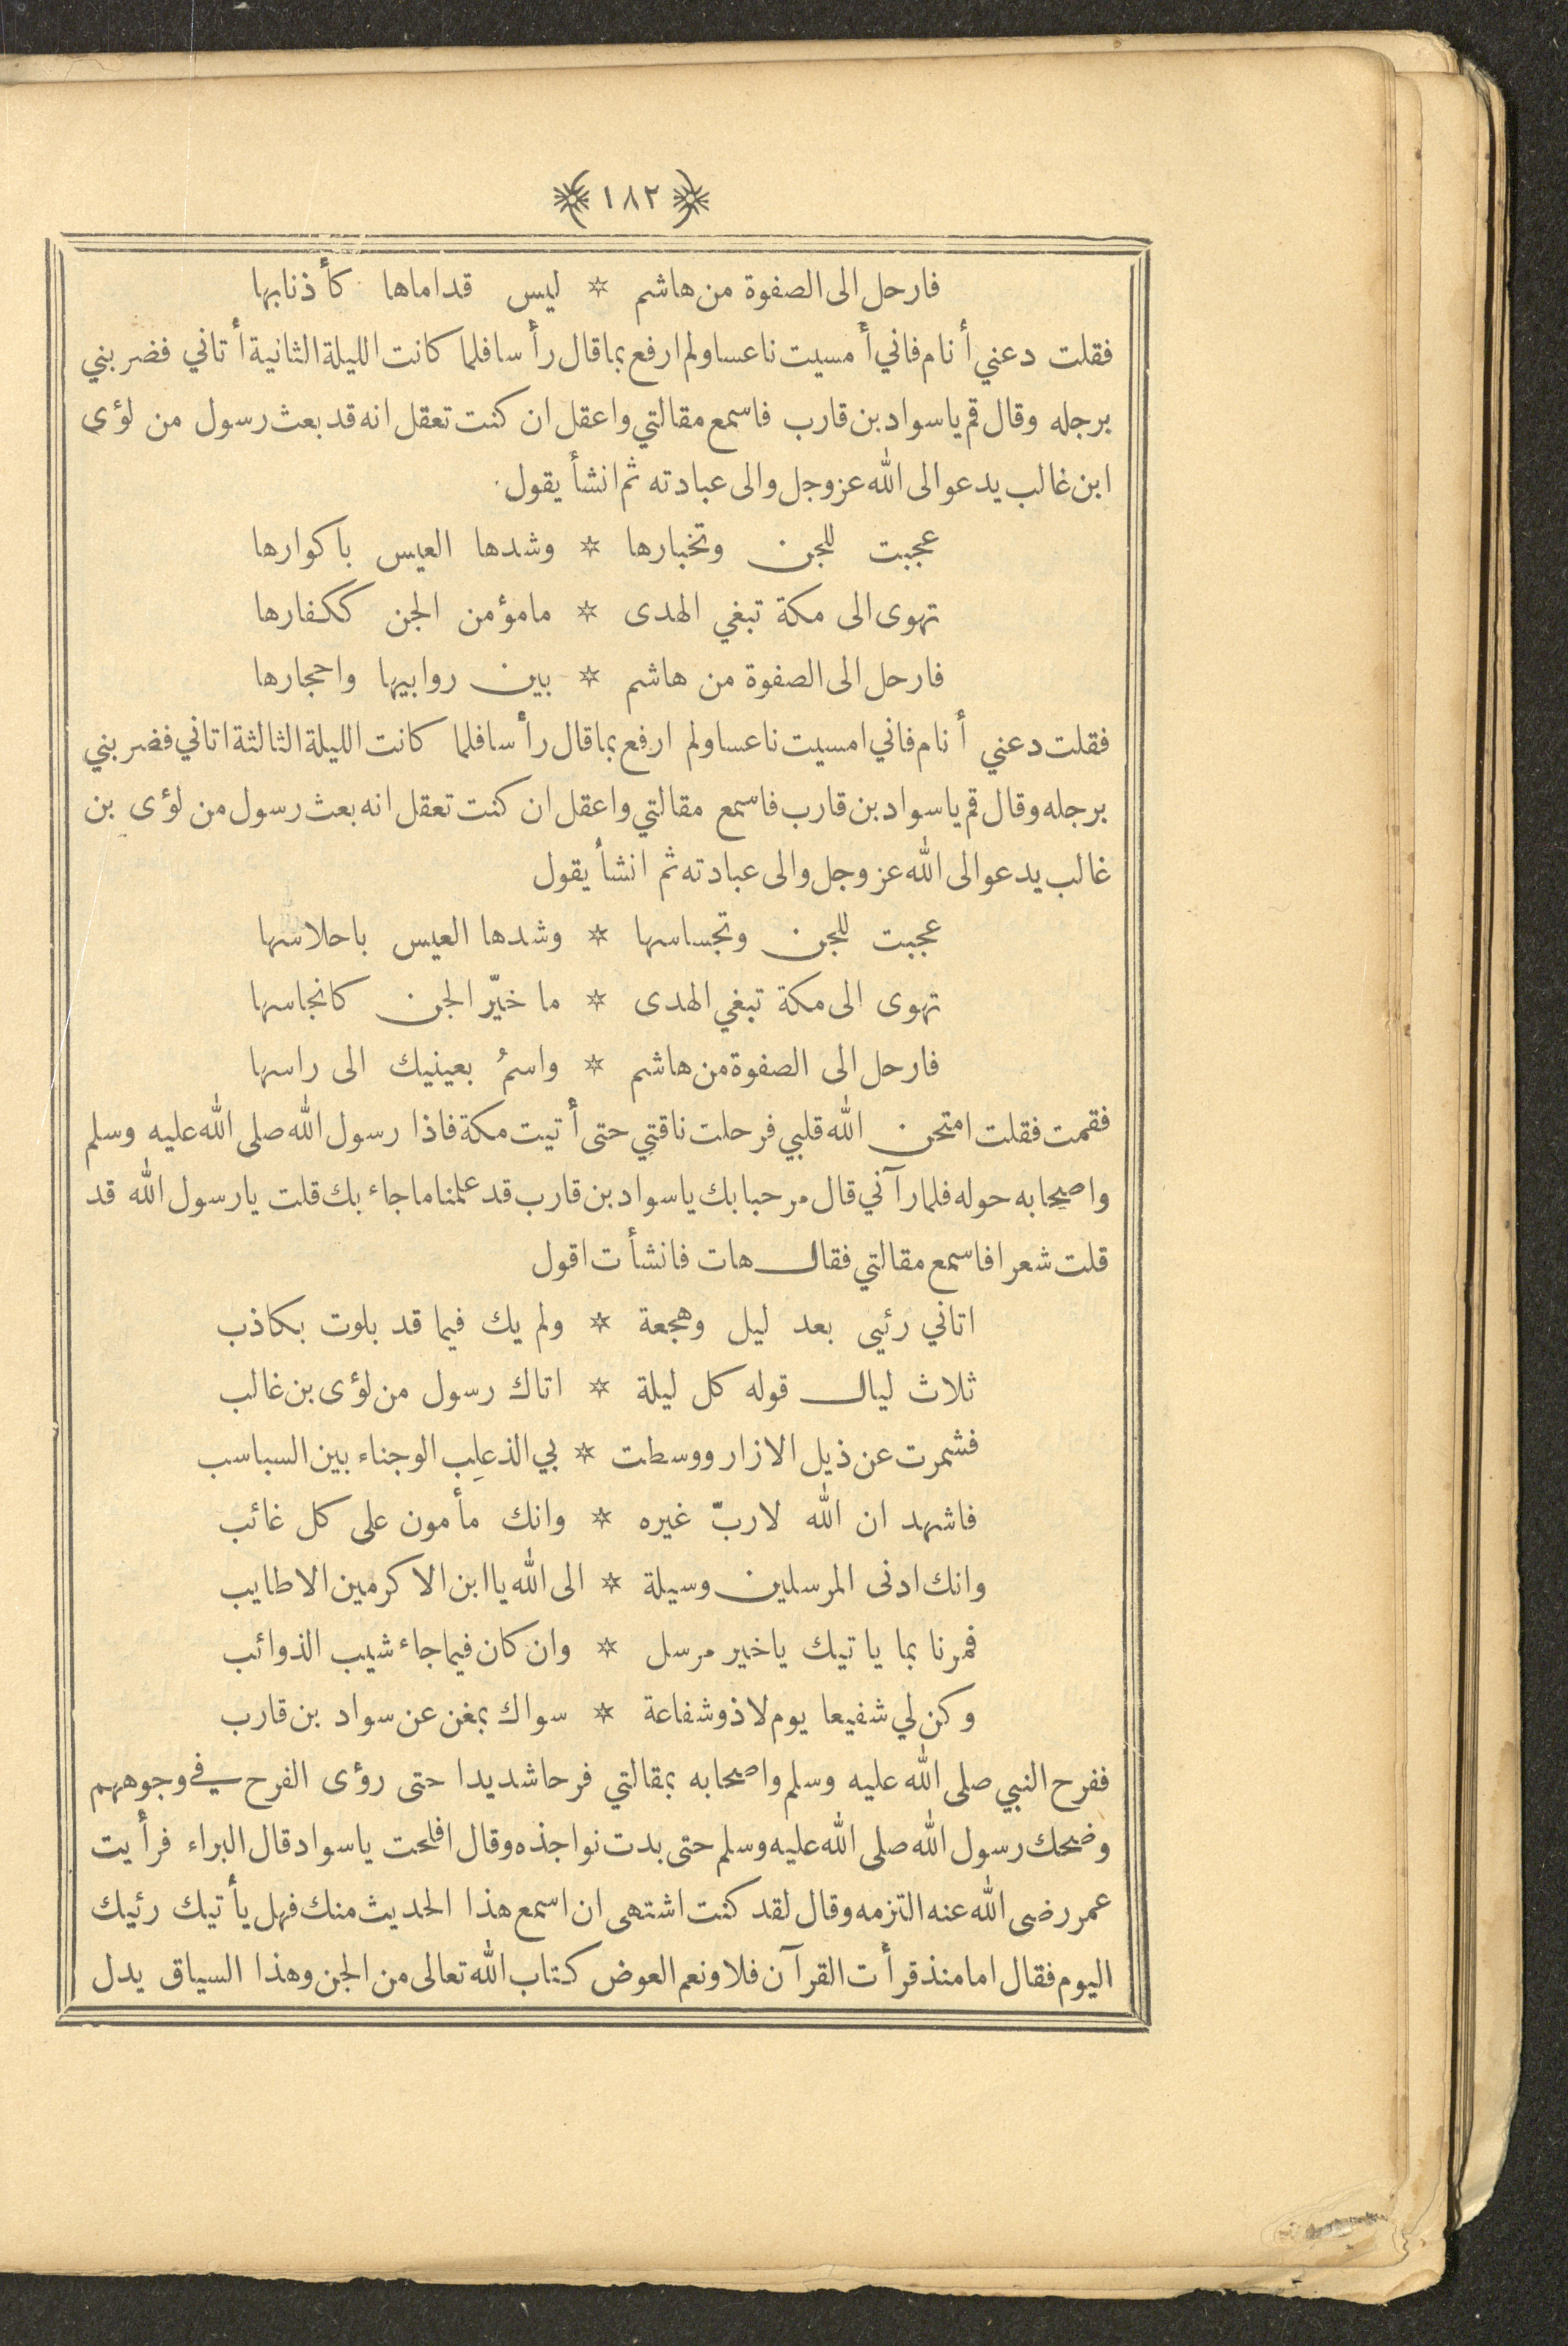 ١٨٢
فارحل الى الصفوة من هاشم * ليس قداماها كأذنابها
فقلت دعني أنام فاني أمسيت ناعسا ولم ارفع بما قال رأسا فلما كانت الليلة الثانية أتاني فضربني
برجله وقال قم يا سواد بن قارب فاسمع مقالتي واعقل ان كنت تعقل انه قد بعث رسول من لؤى
ابن غالب يدعو الى الله عز وجل والى عبادته ثم انشأ يقول.
عجبت للجن وتخبارها * وشدها العيس باكوارها
تهوى الى مكة تبغي الهدى * ما مؤمن الجن ككفارها
فارحل الى الصفوة من هاشم * بين روابيها واحجارها
فقلت دعني أنام فاني امسيت ناعسا ولم ارفع بما قال رأسا فلما كانت الليلة الثالثة اتاني فضربني
برجله وقال قم يا سواد بن قارب فاسمع مقالتي واعقل ان كنت تعقل انه بعث رسول من لؤى بن
غالب يدعو الى الله عز وجل والى عبادته ثم انشأ يقول
عجبت للجن وتجساسها * وشدها العيس باحلاسها
تهوى الى مكة تبغي الهدى * ما خيّر الجن كانجاسها
فارحل الى الصفوة من هاشم * واسمُ بعينيك الى راسها
فقمت فقلت امتحن الله قلبي فرحلت ناقتي حتى أتيت مكة فاذا رسول الله صلى الله عليه وسلم
واصحابه حوله فلما رآني قال مرحبا بك يا سواد بن قارب قد علمنا ما جاء بك قلت يا رسول الله قد
قلت شعرا فاسمع مقالتي فقال هات فانشأت اقول
اتاني رئيى بعد ليل وهجعة * ولم يك فيما قد بلوت بكاذب
ثلاث ليال قوله كل ليلة * اتاك رسول من لؤى بن غالب
فشمرت عن ذيل الازار ووسطت * بي الذعلِب الوجناء بين السباسب
فاشهد ان الله لا ربّ غيره * وانك مأمون على كل غائب
وانك ادنى المرسلين وسيلة * الى الله يا ابن الاكرمين الاطايب
فمرنا بما ياتيك يا خير مرسل * وان كان فيما جاء شيب الذوائب
وكن لي شفيعا يوم لا ذو شفاعة * سواك بمغن عن سواد بن قارب
ففرح النبي صلى الله عليه وسلم واصحابه بمقالتي فرحا شديدا حتى رؤى الفرح في وجوههم
وضحك رسول الله صلى الله عليه وسلم حتى بدت نواجذه وقال افلحت يا سواد قال البراء فرأيت
عمر رضى الله عنه التزمه وقال لقد كنت اشتهى ان اسمع هذا الحديث منك فهل يأتيك رئيك
اليوم فقال اما منذ قرأت القرآن فلا ونعم العوض كتاب الله تعالى من الجن وهذا السياق يدل